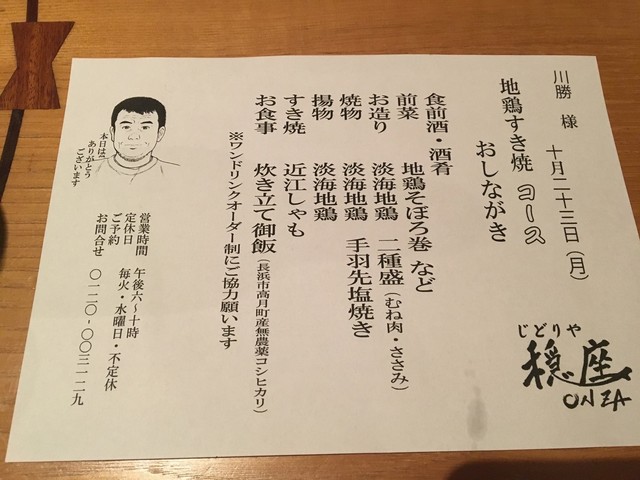 川勝 様 十月二十三日（月）
地鶏すき焼 コース
おしながき
じどりや
穏座
ONZA
食前酒・酒肴
前菜 地鶏そぼろ巻 など
お造り 淡海地鶏 二種盛（むね肉・ささみ）
焼物 淡海地鶏 手羽先塩焼き
揚物 淡海地鶏
すき焼 近江しゃも
お食事 炊き立て御飯（長浜市高月町産無農薬コシヒカリ）
※ワンドリンクオーダー制にご協力願います
本日は
ありがとう
ございます
営業時間 午後六～十時
定休日 毎火・水曜日・不定休
ご予約
お問合せ 〇一二〇-〇〇三一-二九